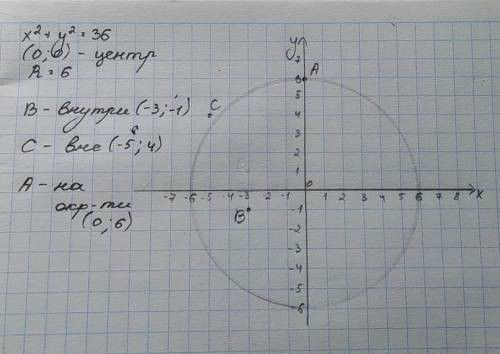 x² + y² = 36
(0; 0) - центр
R = 6
B - внутри (-3; -1)
C - вне (-5; 4)
A - на
окр-ти
(0; 6)
y
7
6 A
5
4
3
2
1
0
-7 -6 -5 -4 -3 -2 -1 1 2 3 4 5 6 7 8 x
-1
-2
-3
-4
-5
-6
C
B